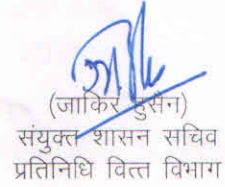 (जाकिर हुसैन)
संयुक्त शासन सचिव
प्रतिनिधि वित्त विभाग